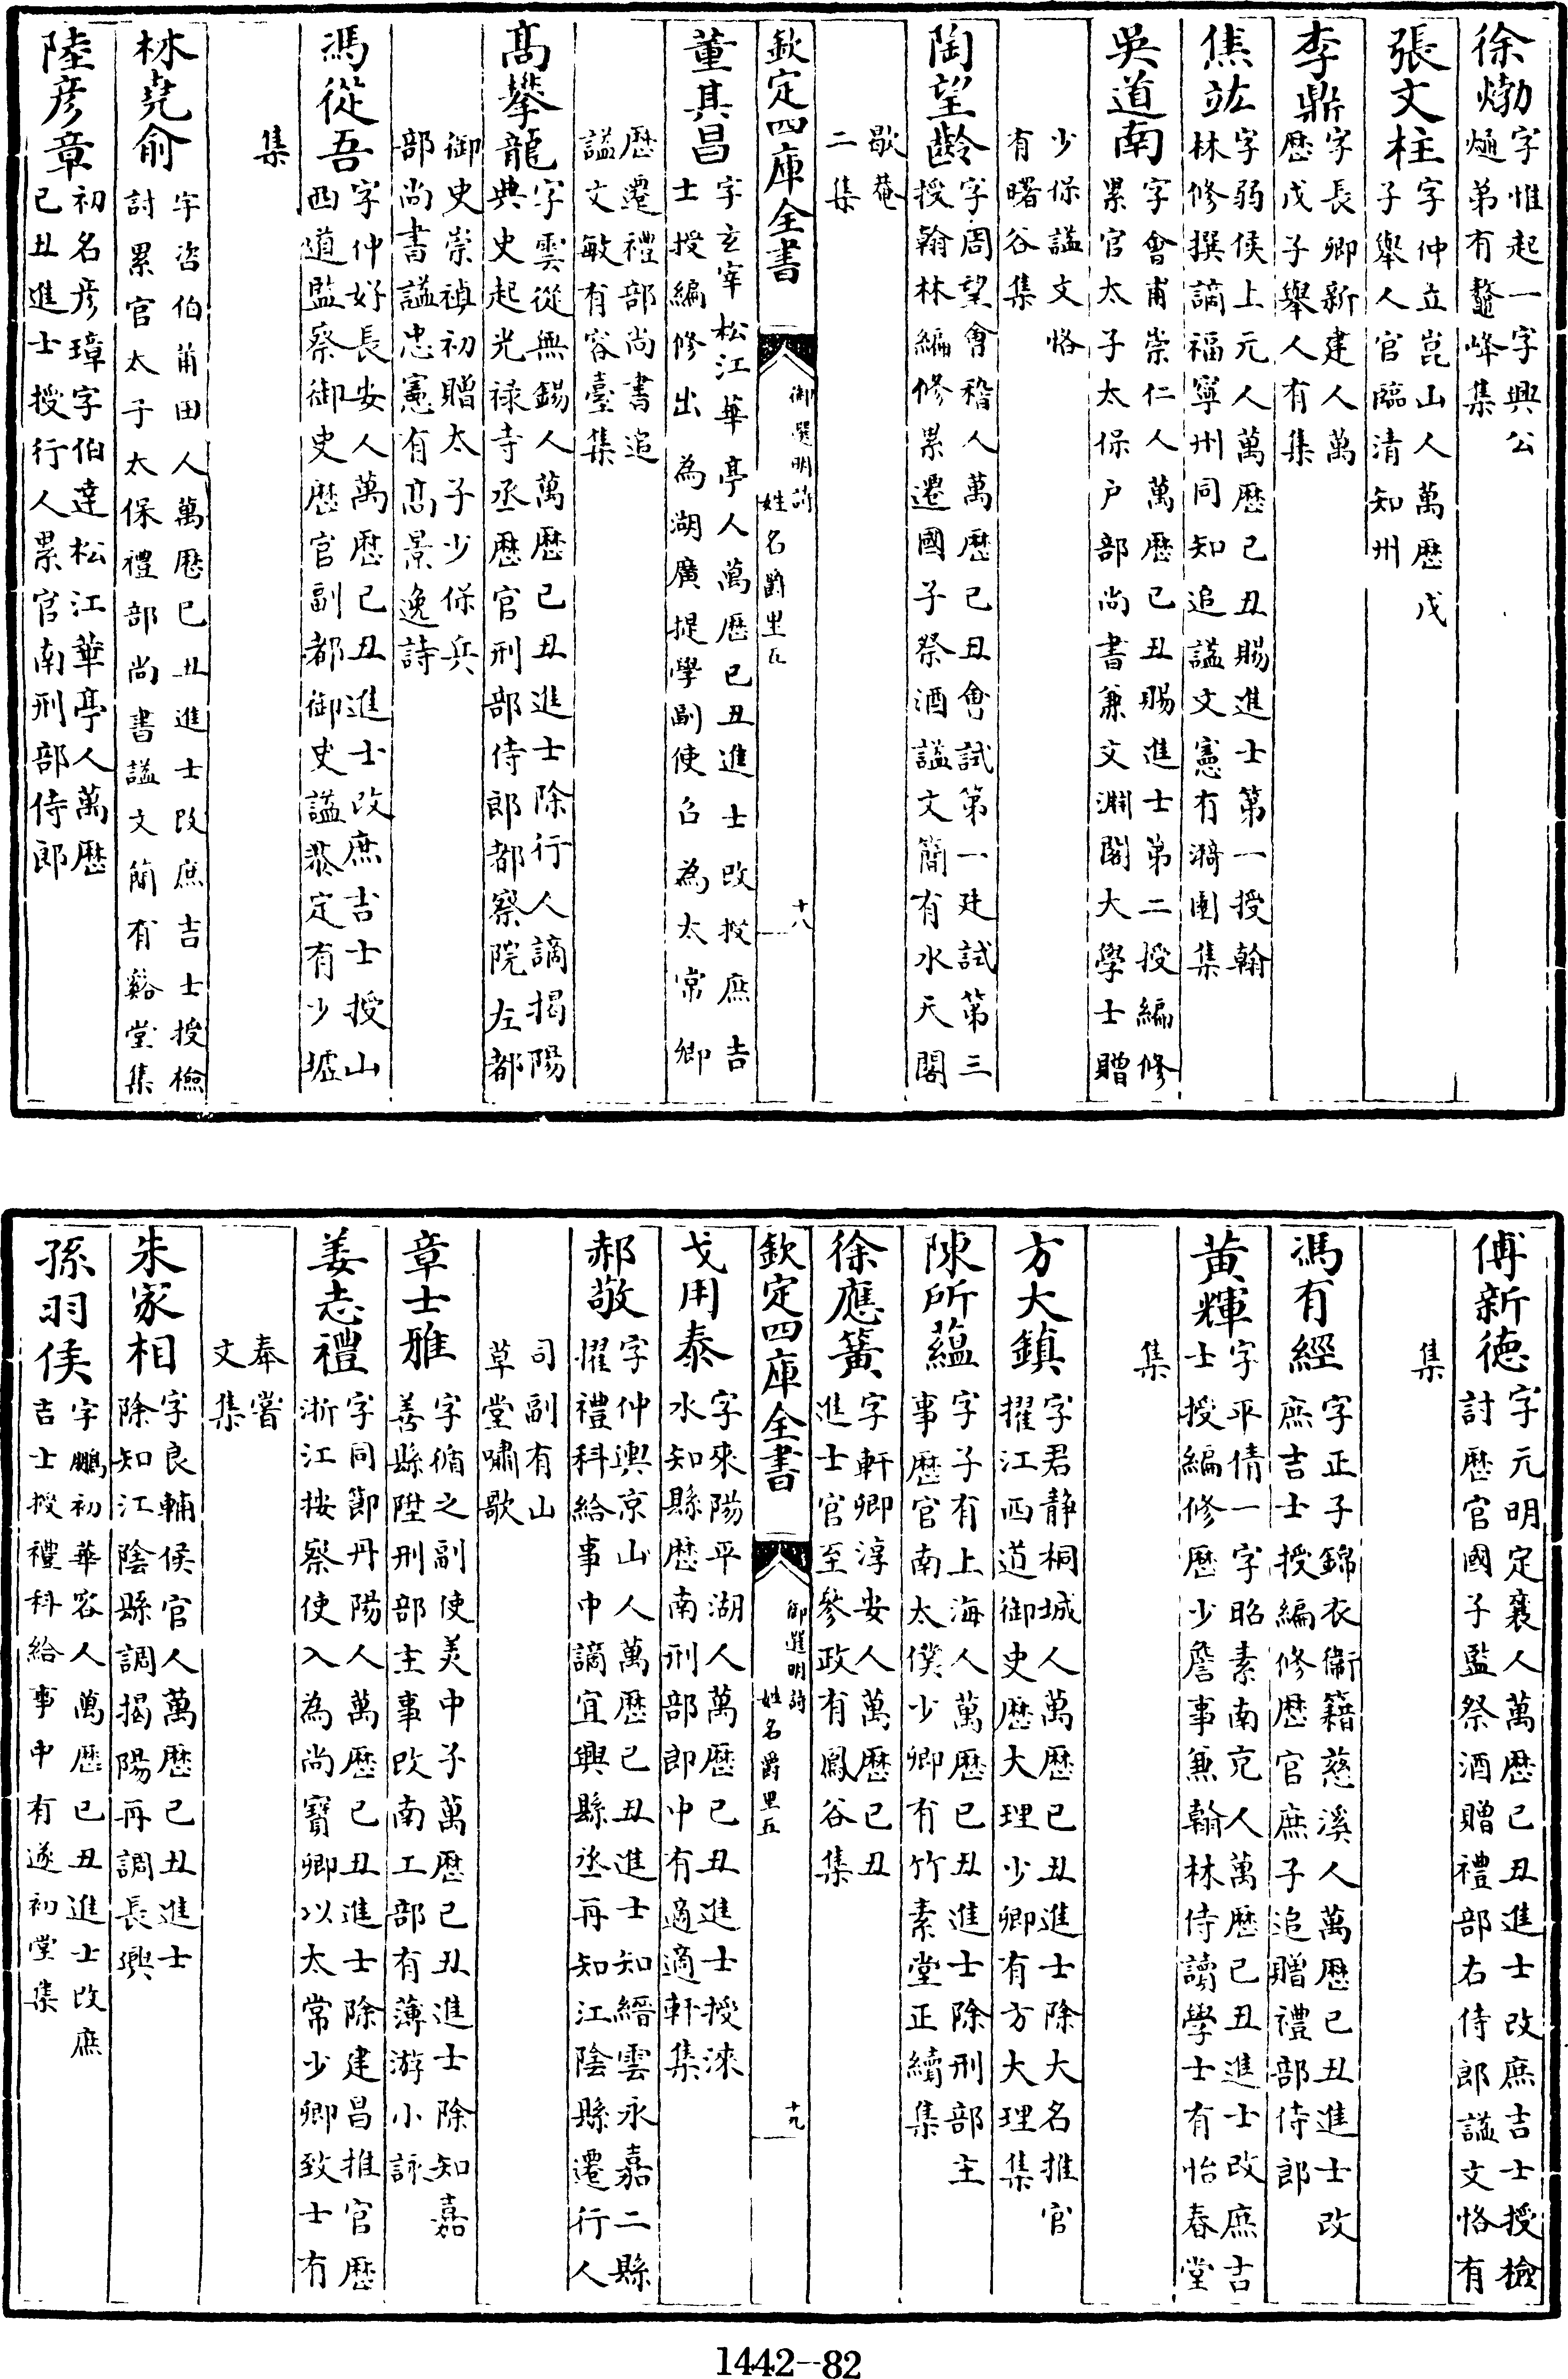 徐㶿字惟起一字興公
熥弟有鼇峰集
張文柱字仲立崑山人萬歴戊
子舉人官臨清知州
李鼎字長卿新建人萬
歴戊子舉人有集
焦竑字弱侯上元人萬歴己丑賜進士第一授翰
林修撰謫福寧州同知追諡文憲有漪園集
吳道南字會甫崇仁人萬歴己丑賜進士第二授編修
累官太子太保户部尚書兼文淵閣大學士贈
少保諡文恪
有曙谷集
陶望齡字周望會稽人萬歴己丑會試第一廷試第三
授翰林編修累遷國子祭酒諡文簡有水天閣
歇菴
二集
欽定四庫全書
御選明詩
姓名爵里五
十八
董其昌字玄宰松江華亭人萬歴己丑進士改授庶吉
士授編修出為湖廣提學副使召為太常卿
歴遷禮部尚書追
諡文敏有容臺集
髙攀龍字雲從無錫人萬歴己丑進士除行人謫揭陽
典史起光禄寺丞歴官刑部侍郎都察院左都
御史崇禎初贈太子少保兵
部尚書諡忠憲有髙景逸詩
馮從吾字仲好長安人萬歴己丑進士改庶吉士授山
西道監察御史歴官副都御史諡恭定有少墟
集
林堯俞字咨伯莆田人萬歴己丑進士改庶吉士授檢
討累官太子太保禮部尚書諡文簡有谿堂集
陸彦章初名彦璋字伯達松江華亭人萬歴
己丑進士授行人累官南刑部侍郎
傅新徳字元明定襄人萬歴己丑進士改庶吉士授檢
討歴官國子監祭酒贈禮部右侍郎諡文恪有
集
馮有經字正子錦衣衞籍慈溪人萬歴己丑進士改
庶吉士授編修歴官庶子追贈禮部侍郎
黃輝字平倩一字昭素南充人萬歴己丑進士改庶吉
士授編修歴少詹事兼翰林侍讀學士有怡春堂
集
方大鎮字君静桐城人萬歴己丑進士除大名推官
擢江西道御史歴大理少卿有方大理集
陳所蘊字子有上海人萬歴己丑進士除刑部主
事歴官南太僕少卿有竹素堂正續集
徐應簧字軒卿淳安人萬歴己丑
進士官至參政有鳳谷集
欽定四庫全書
御選明詩
姓名爵里五
十九
戈用泰字來陽平湖人萬歴己丑進士授淶
水知縣歴南刑部郎中有適適軒集
郝敬字仲輿京山人萬歴己丑進士知縉雲永嘉二縣
擢禮科給事中謫宜興縣丞再知江陰縣遷行人
司副有山
草堂嘯歌
章士雅字循之副使美中子萬歴己丑進士除知嘉
善縣陞刑部主事改南工部有薄游小詠
姜志禮字同節丹陽人萬歴己丑進士除建昌推官歴
浙江按察使入為尚寶卿以太常少卿致士有
奉嘗
文集
朱家相字良輔侯官人萬歴己丑進士
除知江陰縣調揭陽再調長興
孫羽侯字鵬初華容人萬歴己丑進士改庶
吉士授禮科給事中有遂初堂集
1442--82